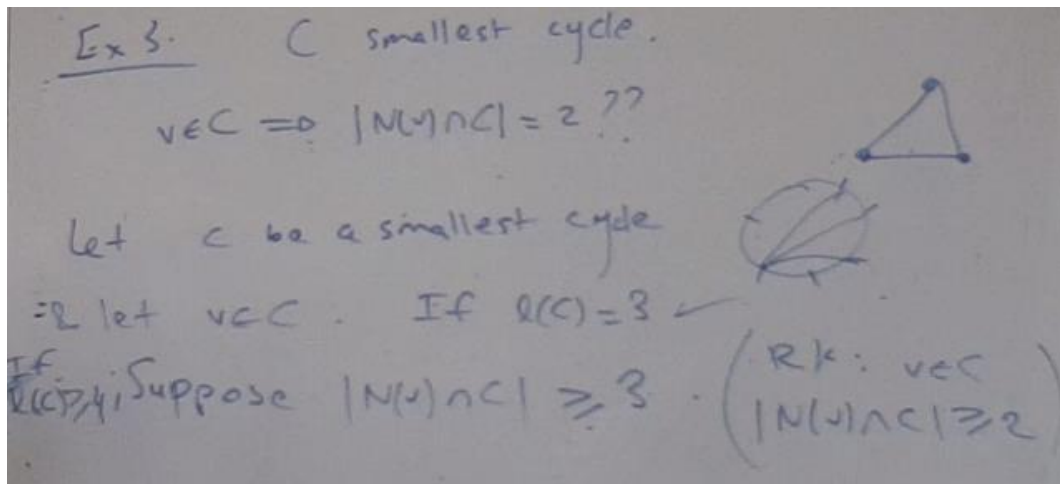 Ex 3. C smallest cycle.
v∈C ⇒ |N(v)∩C| = 2 ??
Let C be a smallest cycle
let v∈C. If l(C)=3 ✓
If l(C)≥4, Suppose |N(v)∩C| ≥ 3.
(Rk: v∈C
|N(v)∩C| ≥ 2)